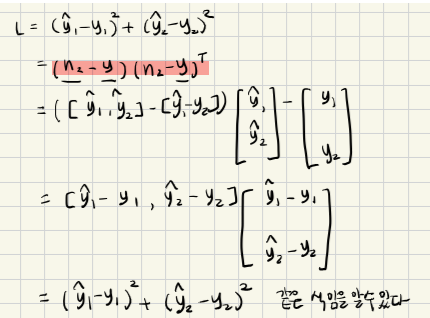 L = (ŷ₁-y₁)² + (ŷ₂-y₂)²
= (n₂-y)(n₂-y)ᵀ
= ([ŷ₁, ŷ₂] - [ŷ₁-y₂]) [ŷ₁ ŷ₂] - [y₁ y₂]
= [ŷ₁-y₁, ŷ₂-y₂] [ŷ₁-y₁ ŷ₂-y₂]
= (ŷ₁-y₁)² + (ŷ₂-y₂)² 같은 식임을 알수 있다